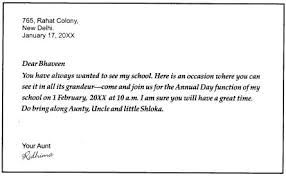 765, Rahat Colony,
New Delhi.
January 17, 20XX
Dear Bhaveen
You have always wanted to see my school. Here is an occasion where you can
see it in all its grandeur—come and join us for the Annual Day function of my
school on 1 February, 20XX at 10 a.m. I am sure you will have a great time.
Do bring along Aunty, Uncle and little Shloka.
Your Aunt
Ridhima